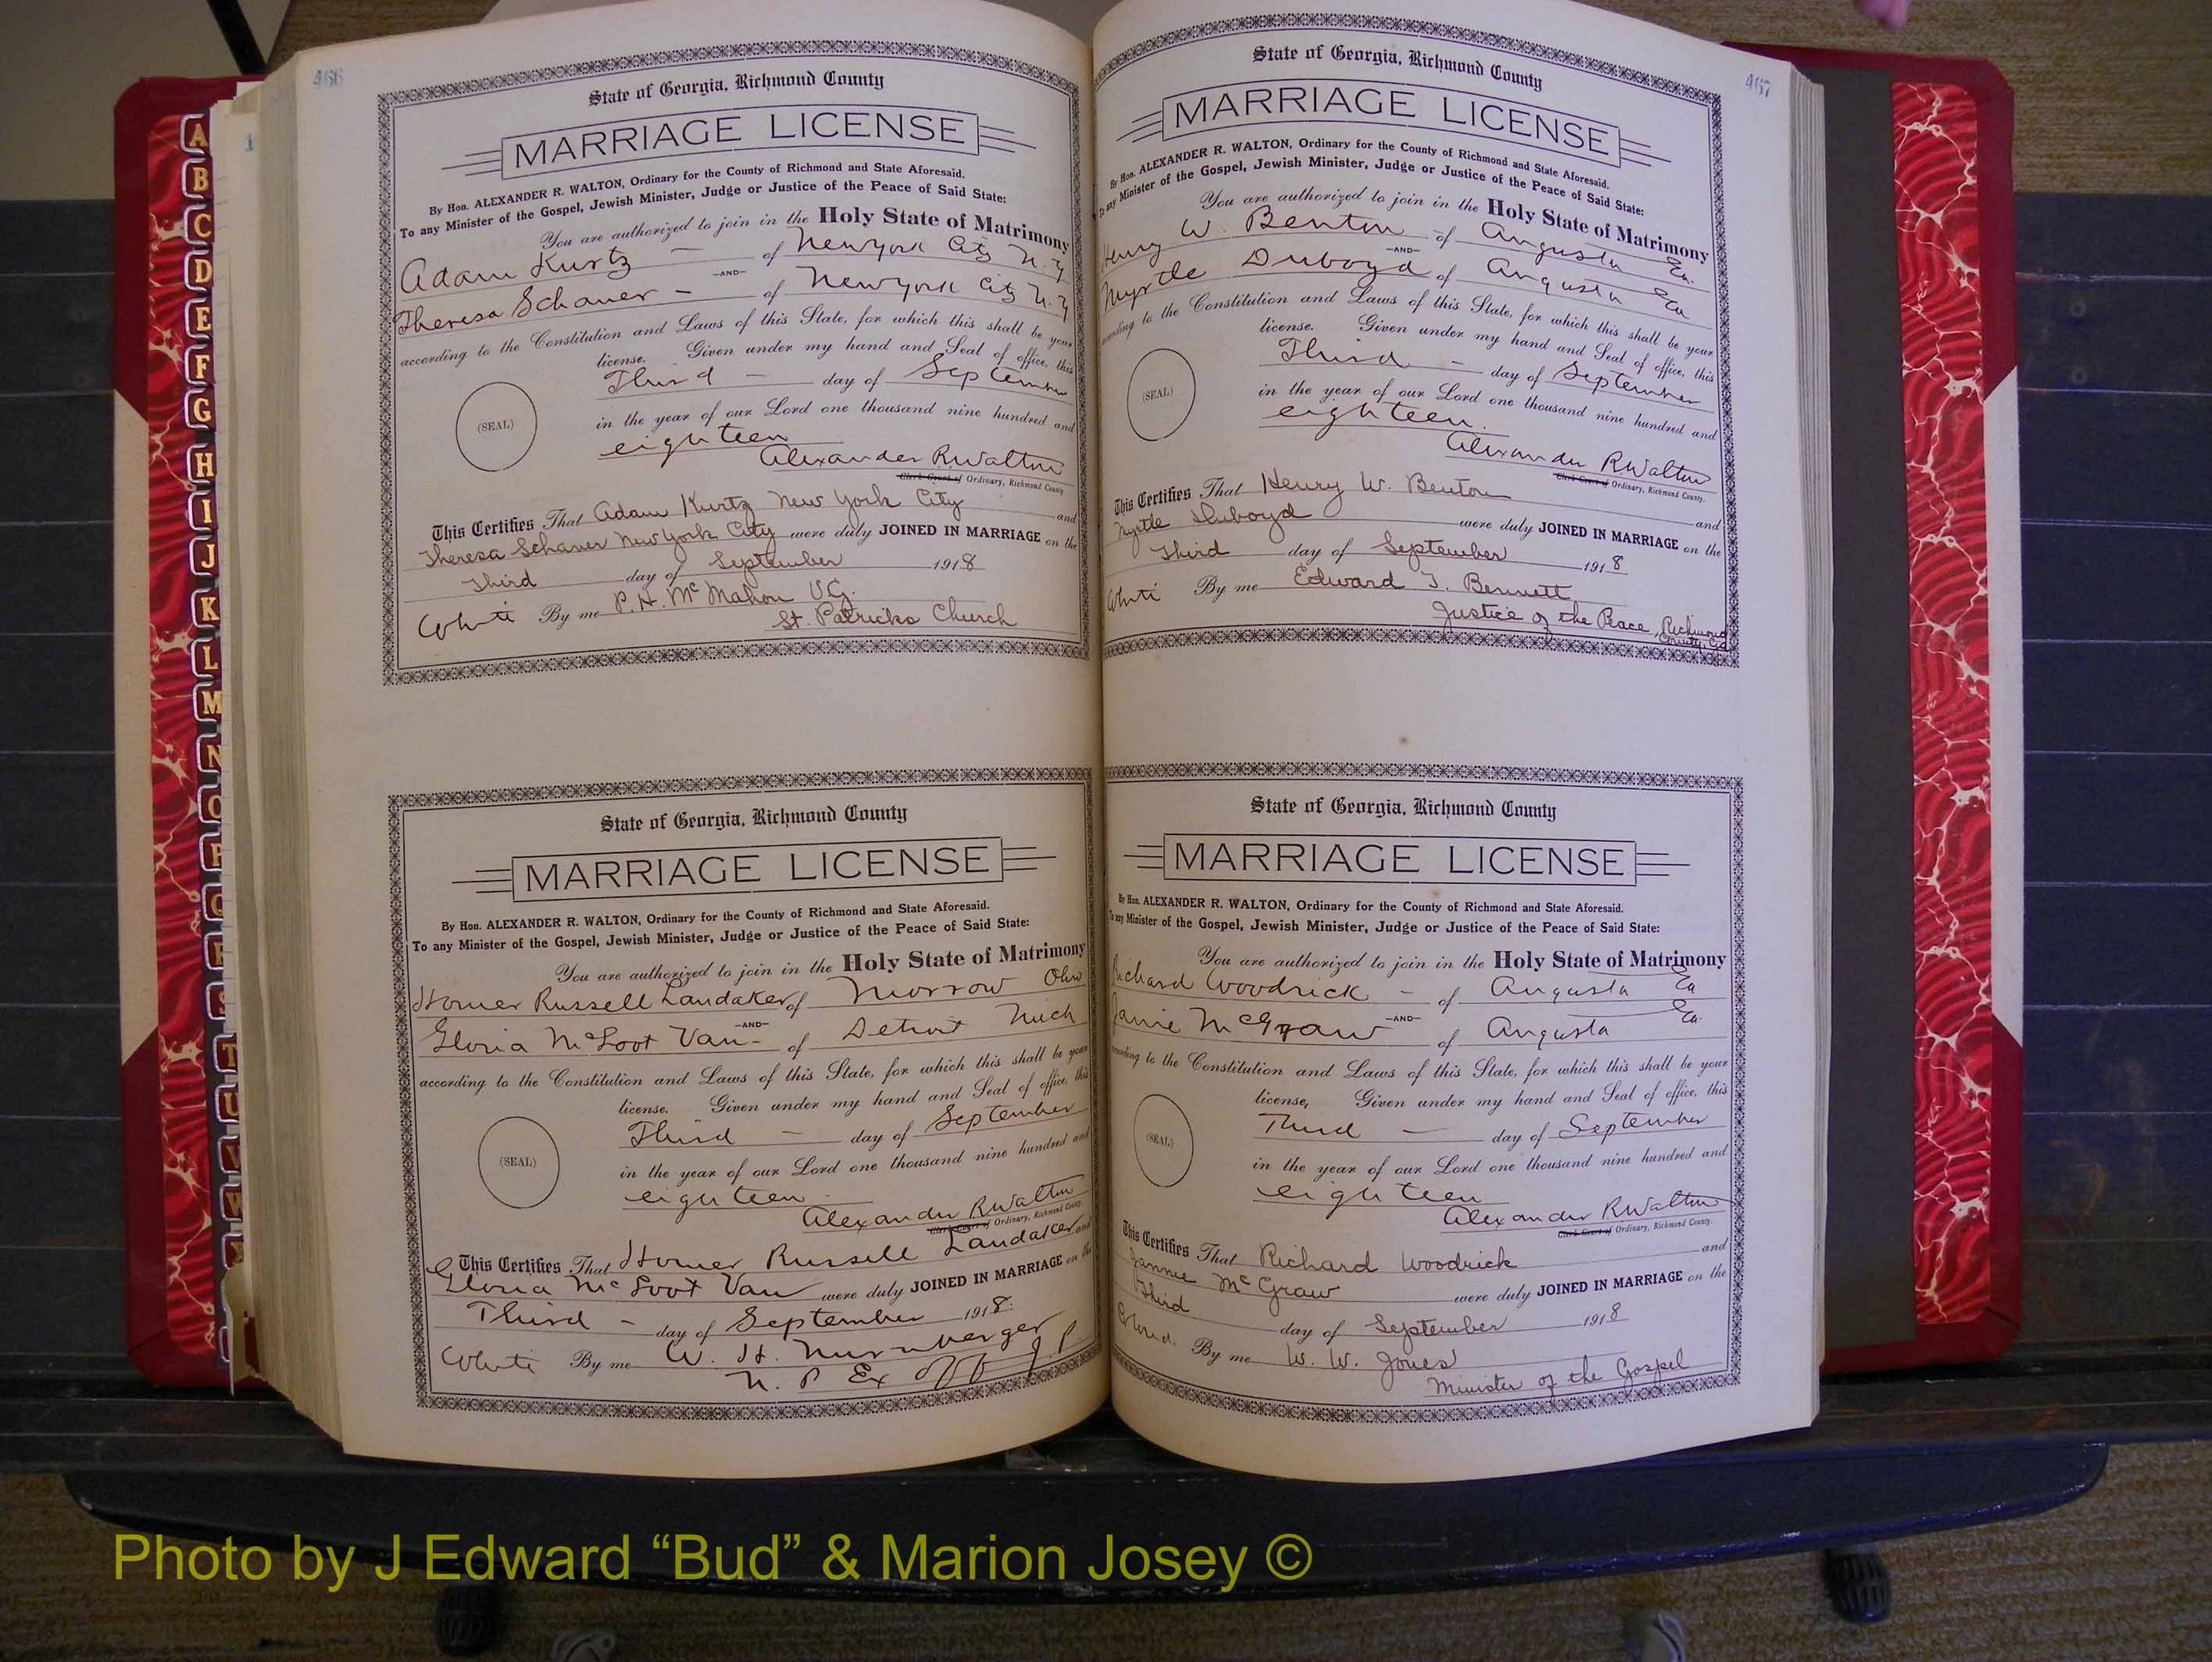 466
State of Georgia, Richmond County
MARRIAGE LICENSE
By Hon. ALEXANDER R. WALTON, Ordinary for the County of Richmond and State Aforesaid.
To any Minister of the Gospel, Jewish Minister, Judge or Justice of the Peace of Said State:
You are authorized to join in the Holy State of Matrimony
Adam Kurtz — of New York City N.Y
—AND—
Theresa Schaner — of New York City N.Y
according to the Constitution and Laws of this State, for which this shall be your
license. Given under my hand and Seal of office, this
Third — day of September
(SEAL)
in the year of our Lord one thousand nine hundred and
eighteen
Alexander R. Walton
Clerk Court of Ordinary, Richmond County
This Certifies That Adam Kurtz New York City and
Theresa Schaner New York City were duly JOINED IN MARRIAGE on the
Third day of September 1918
White By me P. H. McMahon V.G.
St. Patricks Church
State of Georgia, Richmond County
MARRIAGE LICENSE
By Hon. ALEXANDER R. WALTON, Ordinary for the County of Richmond and State Aforesaid.
To any Minister of the Gospel, Jewish Minister, Judge or Justice of the Peace of Said State:
You are authorized to join in the Holy State of Matrimony
Homer Russell Landaker of Morrow Ohio
—AND—
Gloria McLoot Van — of Detroit Mich
according to the Constitution and Laws of this State, for which this shall be your
license. Given under my hand and Seal of office, this
Third — day of September
(SEAL)
in the year of our Lord one thousand nine hundred and
eighteen
Alexander R. Walton
Clerk Court of Ordinary, Richmond County.
This Certifies That Homer Russell Landaker and
Gloria McLoot Van were duly JOINED IN MARRIAGE on the
Third — day of September 1918.
White By me W. H. Nurnberger
N. P. Ex off J. P.
467
State of Georgia, Richmond County
MARRIAGE LICENSE
By Hon. ALEXANDER R. WALTON, Ordinary for the County of Richmond and State Aforesaid.
To any Minister of the Gospel, Jewish Minister, Judge or Justice of the Peace of Said State:
You are authorized to join in the Holy State of Matrimony
Henry W. Benton of Augusta Ga.
—AND—
Myrtle Duboyd of Augusta Ga
according to the Constitution and Laws of this State, for which this shall be your
license. Given under my hand and Seal of office, this
Third — day of September
(SEAL)
in the year of our Lord one thousand nine hundred and
eighteen.
Alexander R. Walton
Clerk Court of Ordinary, Richmond County.
This Certifies That Henry W. Benton and
Myrtle Duboyd were duly JOINED IN MARRIAGE on the
Third day of September 1918
White By me Edward T. Bennett
Justice of the Peace, Richmond
County, Ga
State of Georgia, Richmond County
MARRIAGE LICENSE
By Hon. ALEXANDER R. WALTON, Ordinary for the County of Richmond and State Aforesaid.
To any Minister of the Gospel, Jewish Minister, Judge or Justice of the Peace of Said State:
You are authorized to join in the Holy State of Matrimony
Richard Woodrick — of Augusta Ga
—AND—
Janie McGraw of Augusta Ga.
according to the Constitution and Laws of this State, for which this shall be your
license, Given under my hand and Seal of office, this
Third — day of September
(SEAL)
in the year of our Lord one thousand nine hundred and
eighteen
Alexander R. Walton
Clerk Court of Ordinary, Richmond County.
This Certifies That Richard Woodrick and
Jannie McGraw were duly JOINED IN MARRIAGE on the
Third day of September 1918
Colored. By me W. W. Jones
Minister of the Gospel
A
B
C
D
E
F
G
H
I
J
K
L
M
N
O
P
Q
R
S
T
U
V
W
Photo by J Edward “Bud” & Marion Josey ©